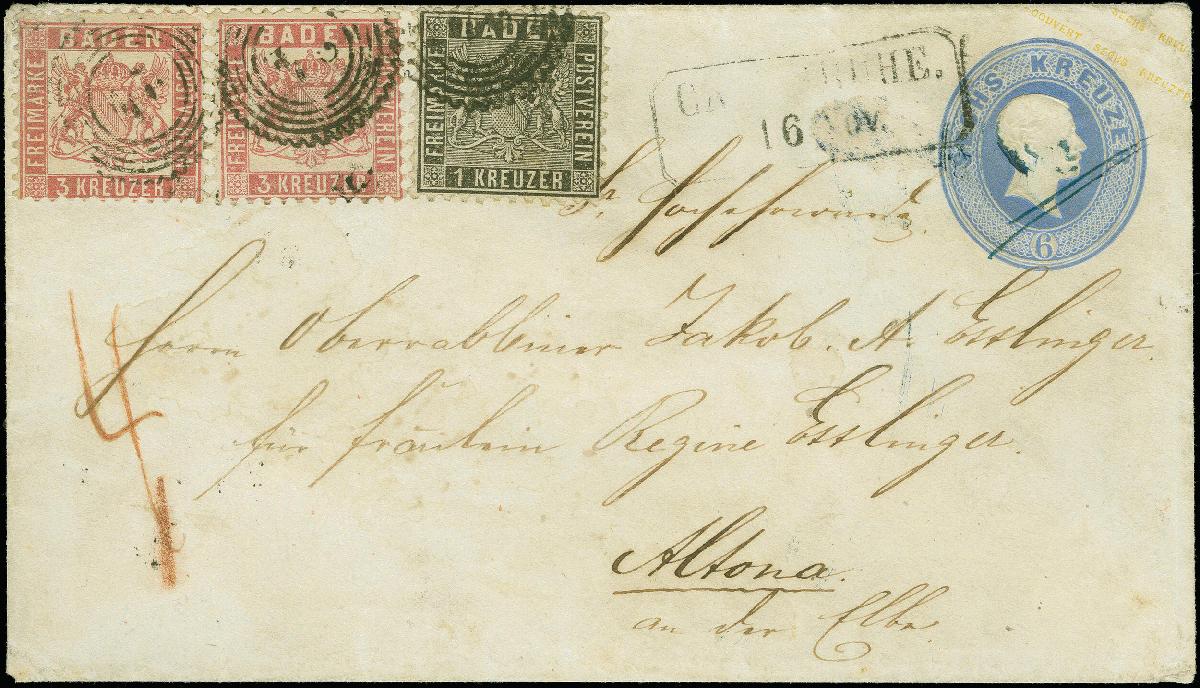 BADEN
FREIMARKE
POSTVEREIN
3 KREUZER
BADEN
FREIMARKE
POSTVEREIN
3 KREUZER
BADEN
FREIMARKE
POSTVEREIN
1 KREUZER
16 Nov.
SECHS KREUZER
6
COUVERT SECHS KREUZER
Sr Hochehrwürd.
Herrn Oberrabbiner Jakob. A. Esslinger.
für fräulein Regine Esslinger.
Altona.
an der Elbe.
4